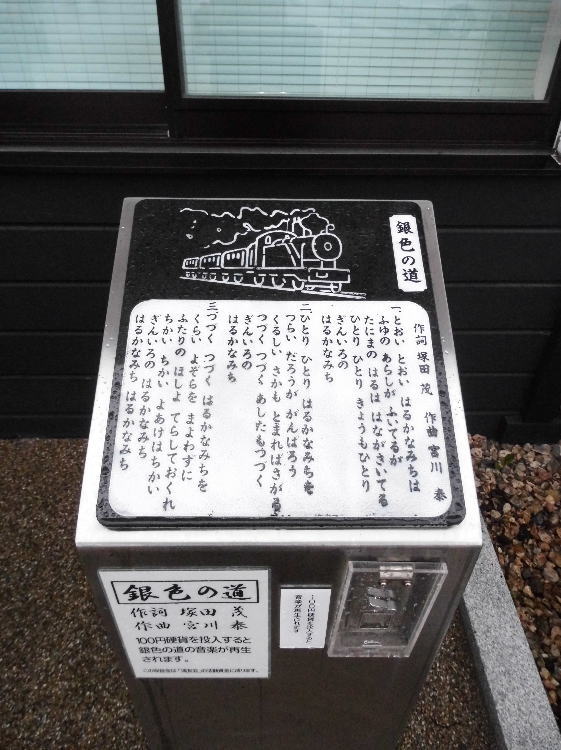 銀色の道
作詞 塚田 茂 作曲 宮川 泰
一、とおい とおい はるかなみちは
ふゆの あらしが ふいてるが
たにまの はるは はながさいてる
ひとり ひとり きょうもひとり
ぎんいろの
はるかなみち
二、ひとり ひとり はるかなみちを
つらい だろうが がんばろう
くるしい さかも とまればさがる
つづく つづく あしたもつづく
ぎんいろの
はるかなみち
三、つづく つづく はるかなみちを
くらい よぞらを まよわずに
ふたりの ほしよ てらしておくれ
ちかい ちかい よあけはちかい
ぎんいろの はるかなみち
はるかなみち はるかなみち
銀色の道
作詞 塚田 茂
作曲 宮川 泰
100円硬貨を投入すると
銀色の道の音楽が再生
されます。
100円硬貨を投入すると
音楽が再生されます